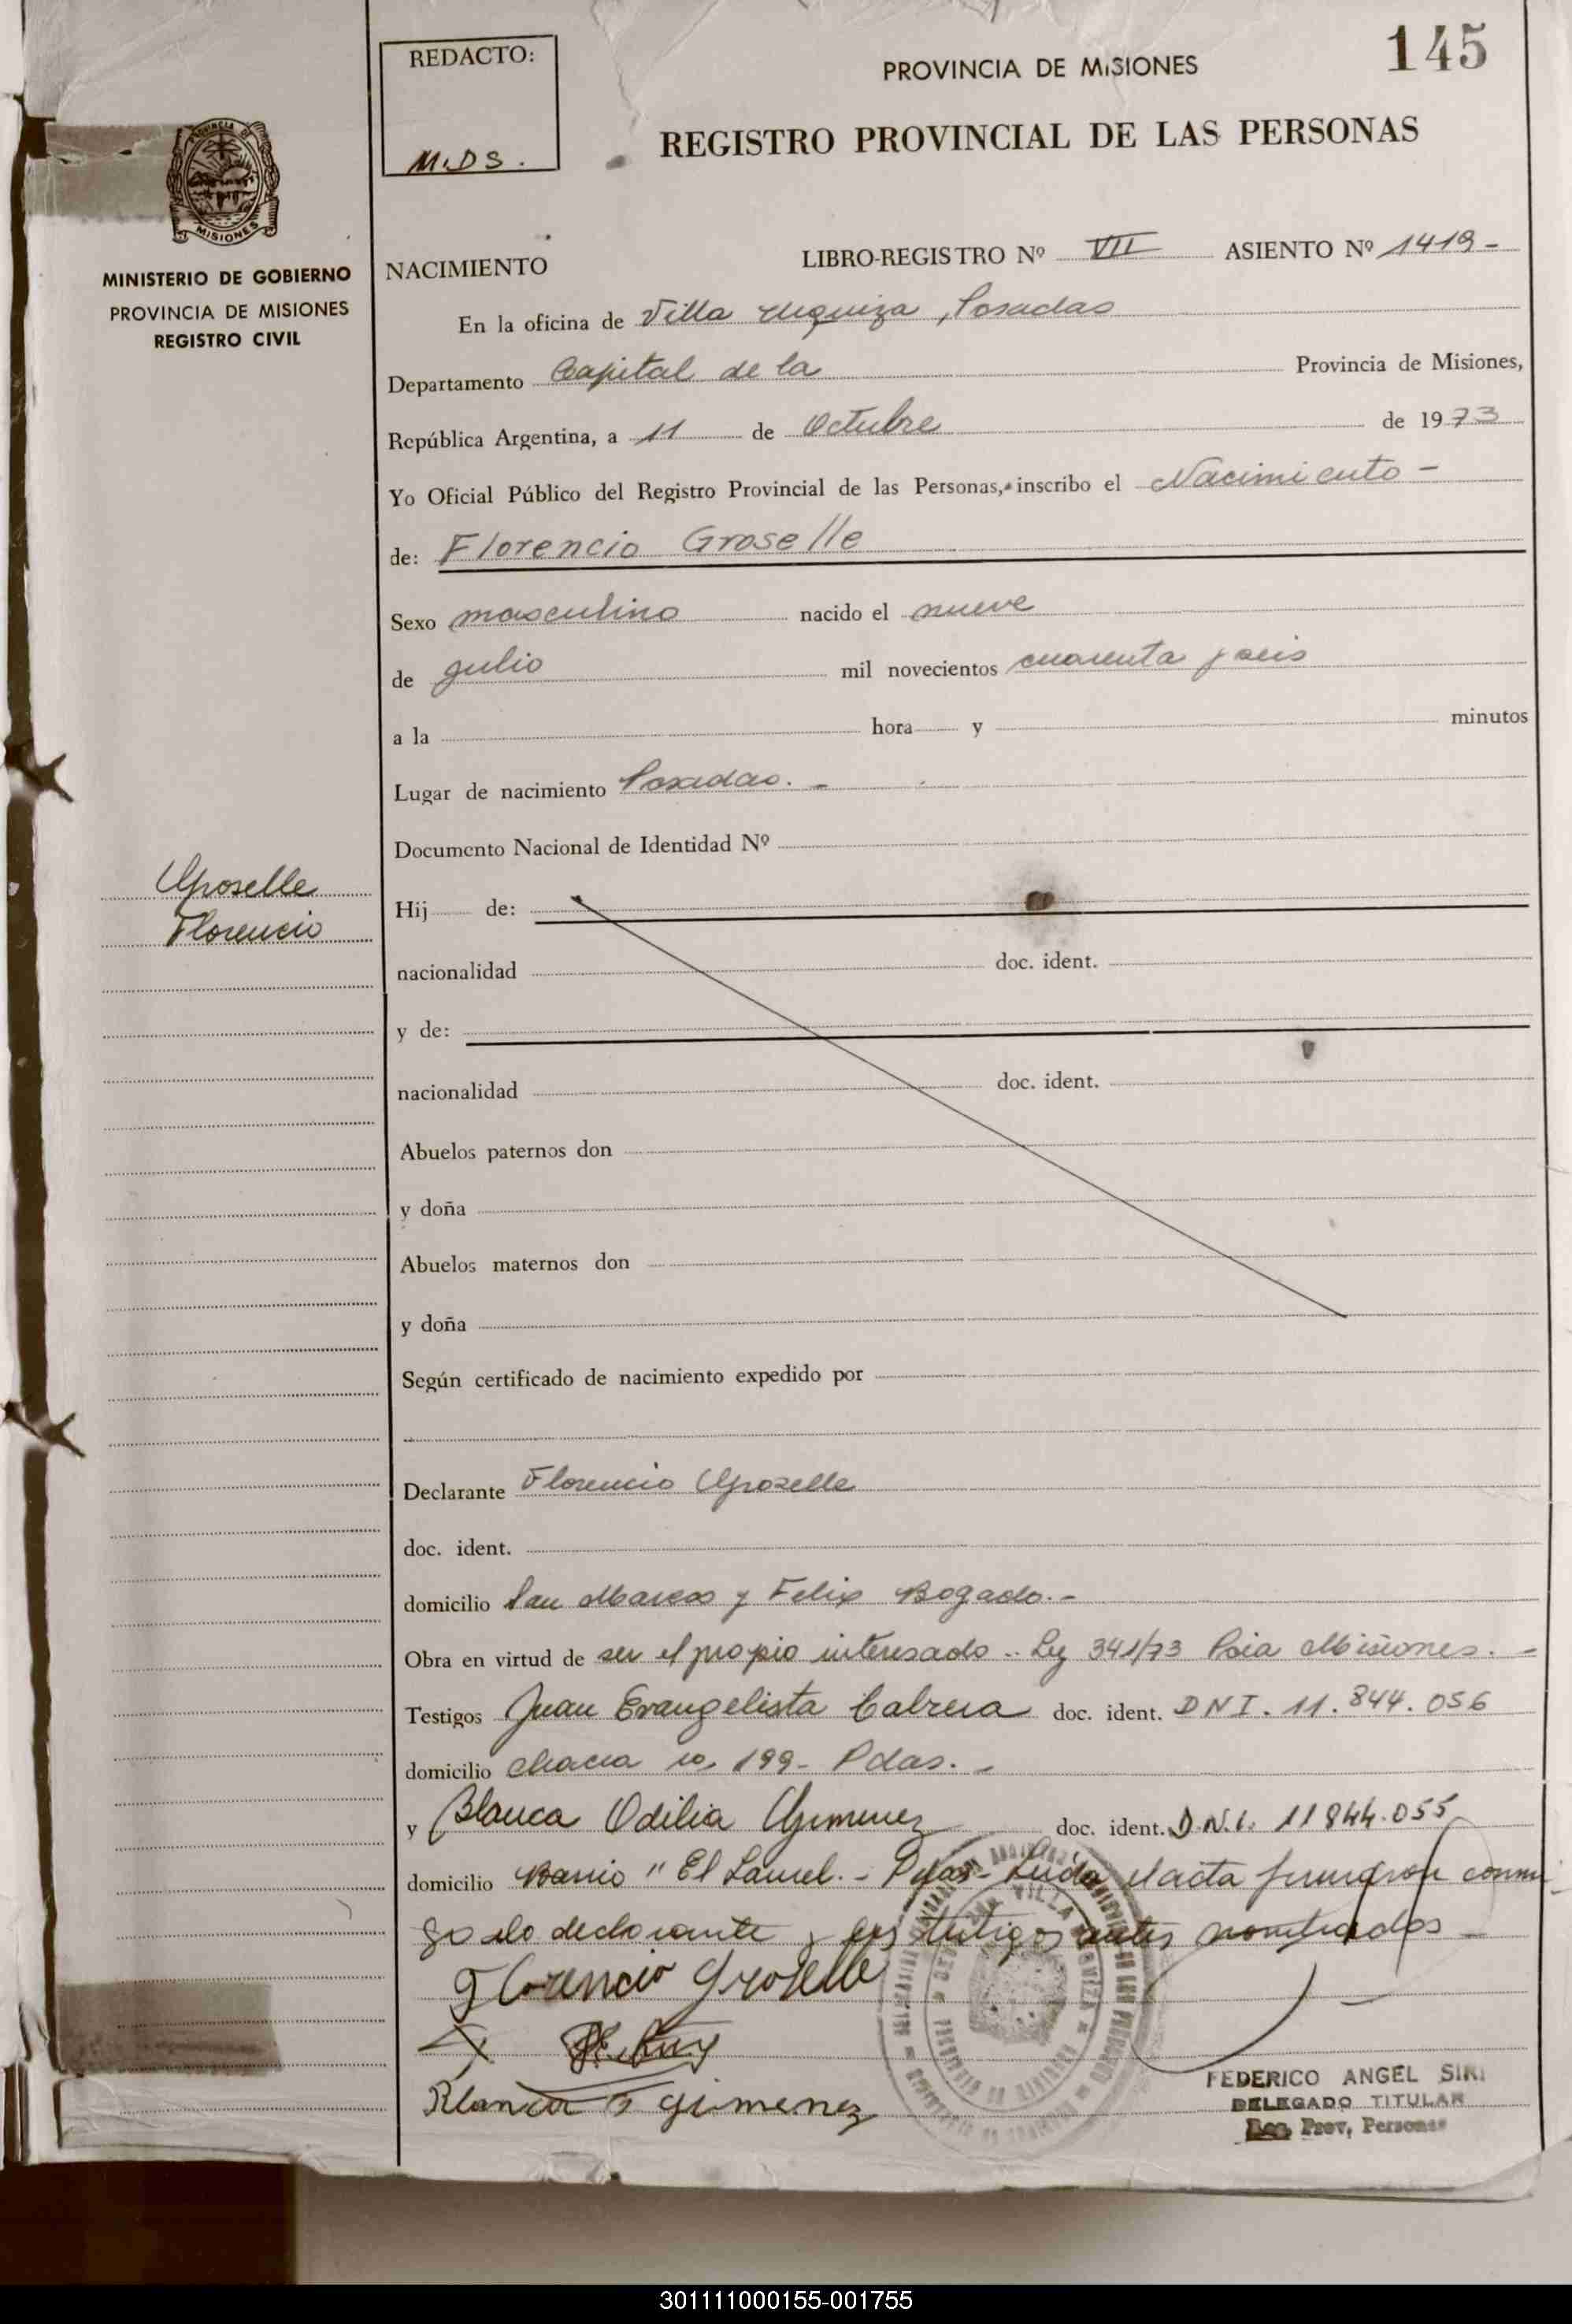 145
REDACTO:
M.D.S.
PROVINCIA DE MISIONES
REGISTRO PROVINCIAL DE LAS PERSONAS
PROVINCIA DE
MISIONES
MINISTERIO DE GOBIERNO
PROVINCIA DE MISIONES
REGISTRO CIVIL
NACIMIENTO LIBRO-REGISTRO Nº VII ASIENTO Nº 1419-
En la oficina de Villa Urquiza, Posadas
Departamento Capital de la Provincia de Misiones,
República Argentina, a 11 de Octubre de 1973
Yo Oficial Público del Registro Provincial de las Personas, inscribo el Nacimiento -
de: Florencio Groselle
Sexo masculino nacido el nueve
de julio mil novecientos cuarenta y seis
a la hora y minutos
Lugar de nacimiento Posadas. -
Documento Nacional de Identidad Nº
Groselle
Florencio
Hij de:
nacionalidad doc. ident.
y de:
nacionalidad doc. ident.
Abuelos paternos don
y doña
Abuelos maternos don
y doña
Según certificado de nacimiento expedido por
Declarante Florencio Groselle
doc. ident.
domicilio San Marcos y Felix Bogado. -
Obra en virtud de ser el propio interesado.. Ley 341/73 Pcia Misiones. -
Testigos Juan Evangelista Cabrera doc. ident. DNI. 11.844.056
domicilio Chacra 199- Pdas. -
y Blanca Odilia Gimenez doc. ident. D.N.I. 11844.055
domicilio Barrio "El Laurel. - Pdas- Leida el acta firmaron conmi
go el declarante y los testigos antes nombrados -
Florencio Groselle
Blanca O gimenez
FEDERICO ANGEL SIRI
DELEGADO TITULAR
Reg. Prov, Personas
301111000155-001755